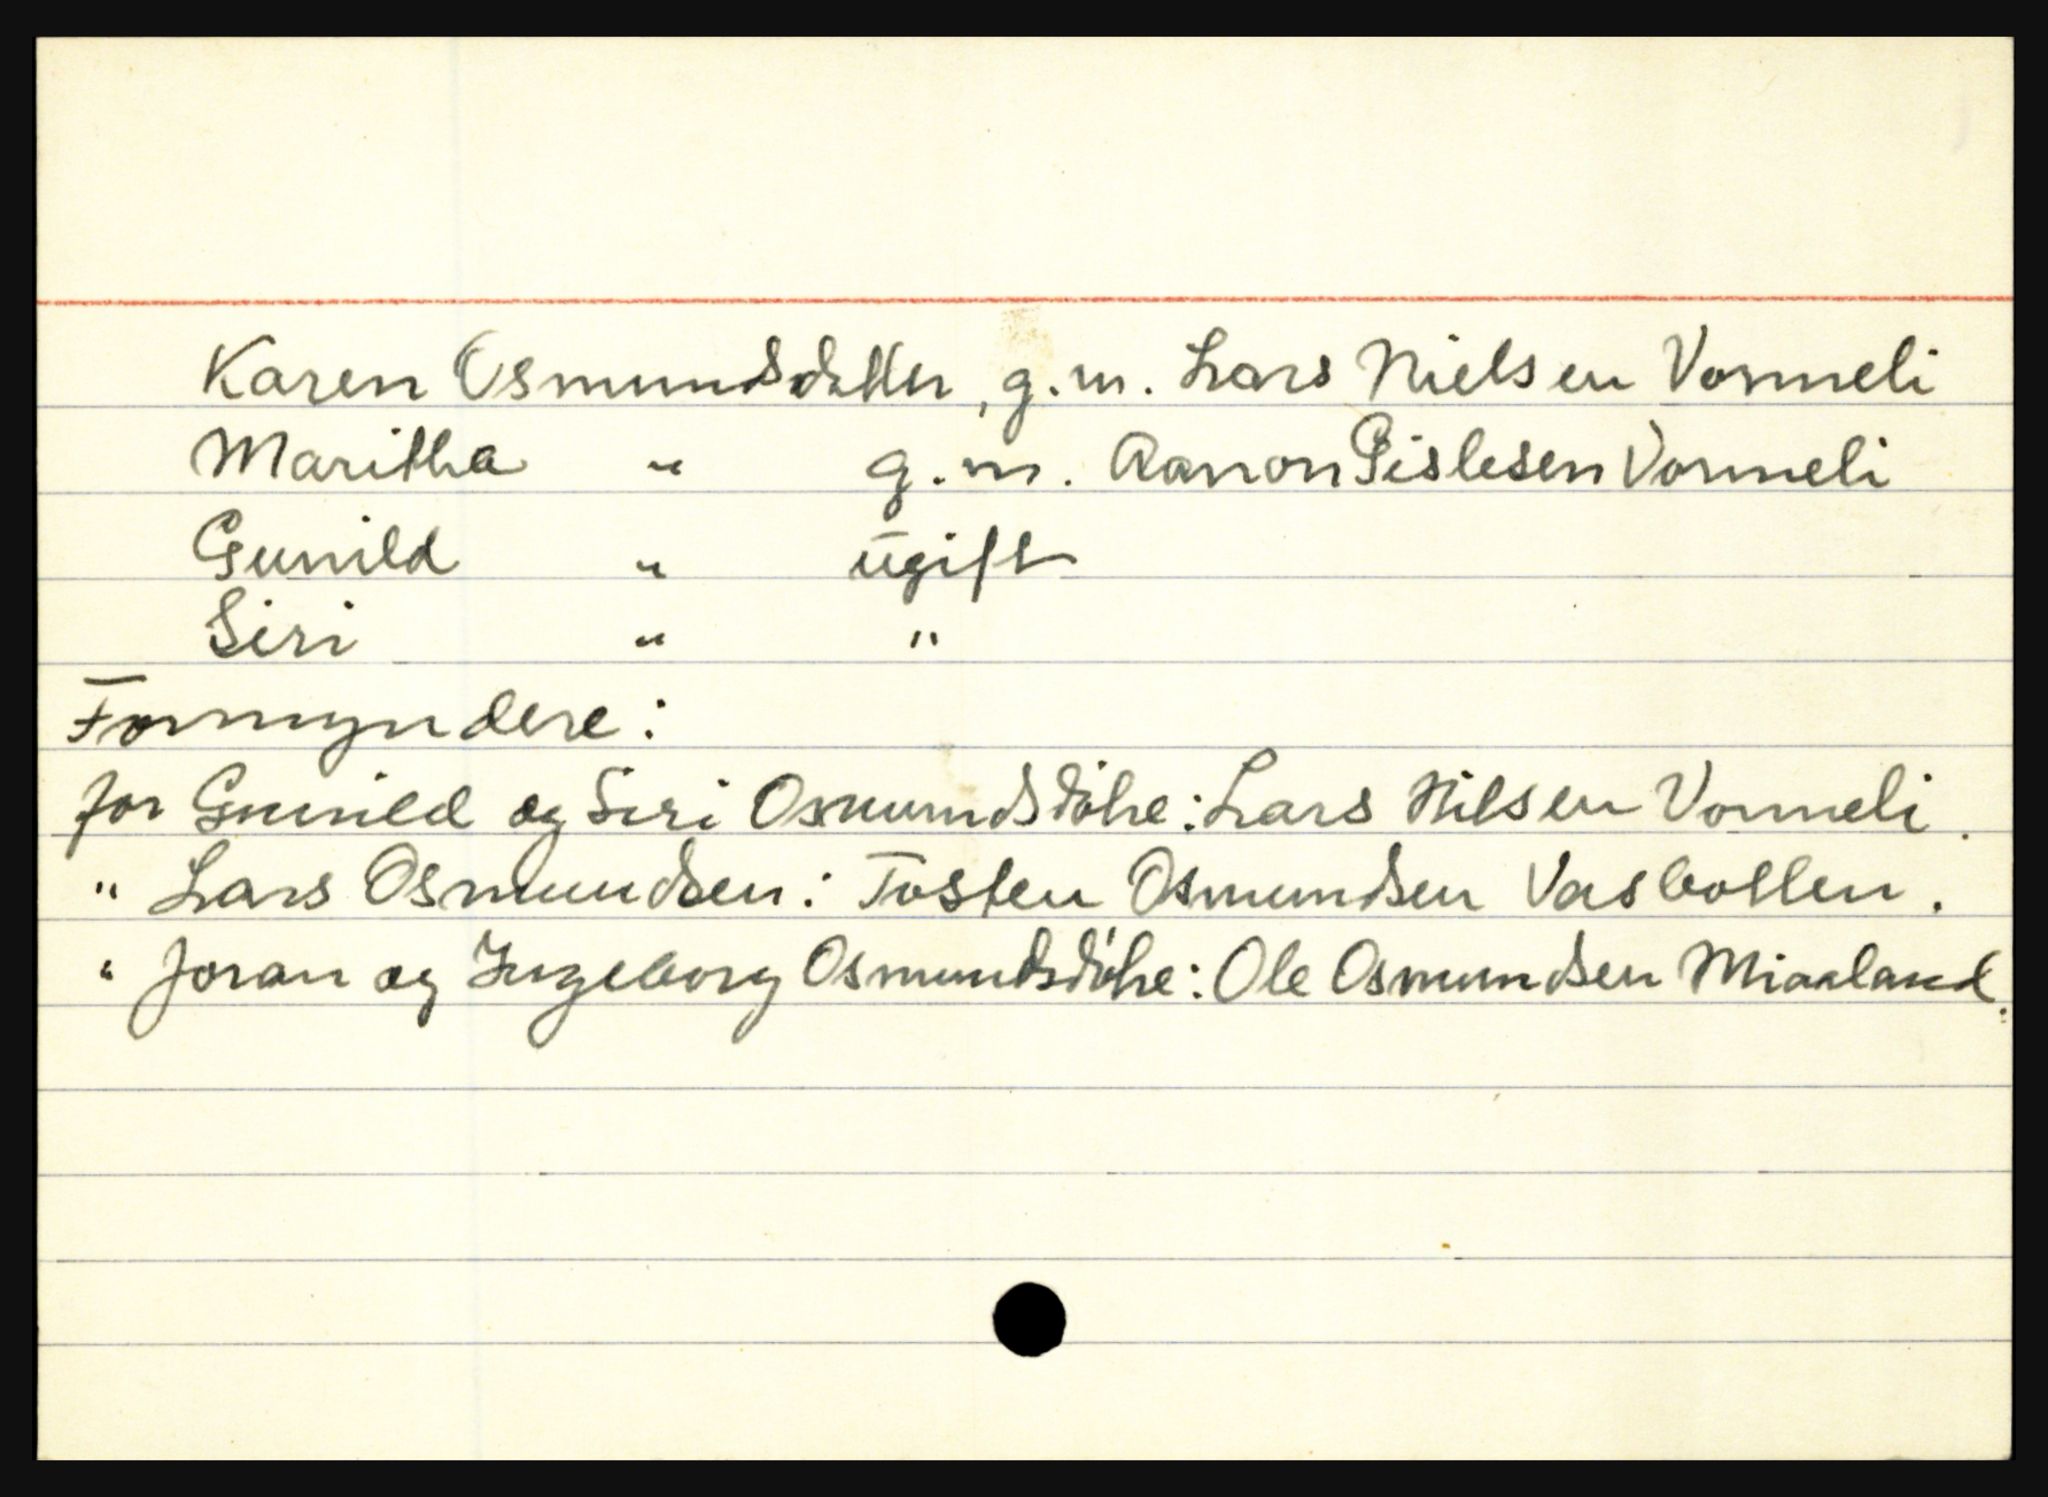 Karen Osmundsdatter, g.m. Lars Nielsen Vormeli
Maritha " g.m. Aanon Gislesen Vormeli
Gunild " ugift
Siri " "
Formyndere:
for Gunild og Siri Osmundsdøtre: Lars Nilsen Vormeli.
" Lars Osmundsen: Tosten Osmundsen Vasbotten.
" Joran og Ingeborg Osmundsdøtre: Ole Osmundsen Miaaland.